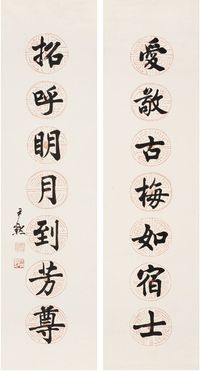 愛敬古梅如宿士
招呼明月到芳尊
尹默